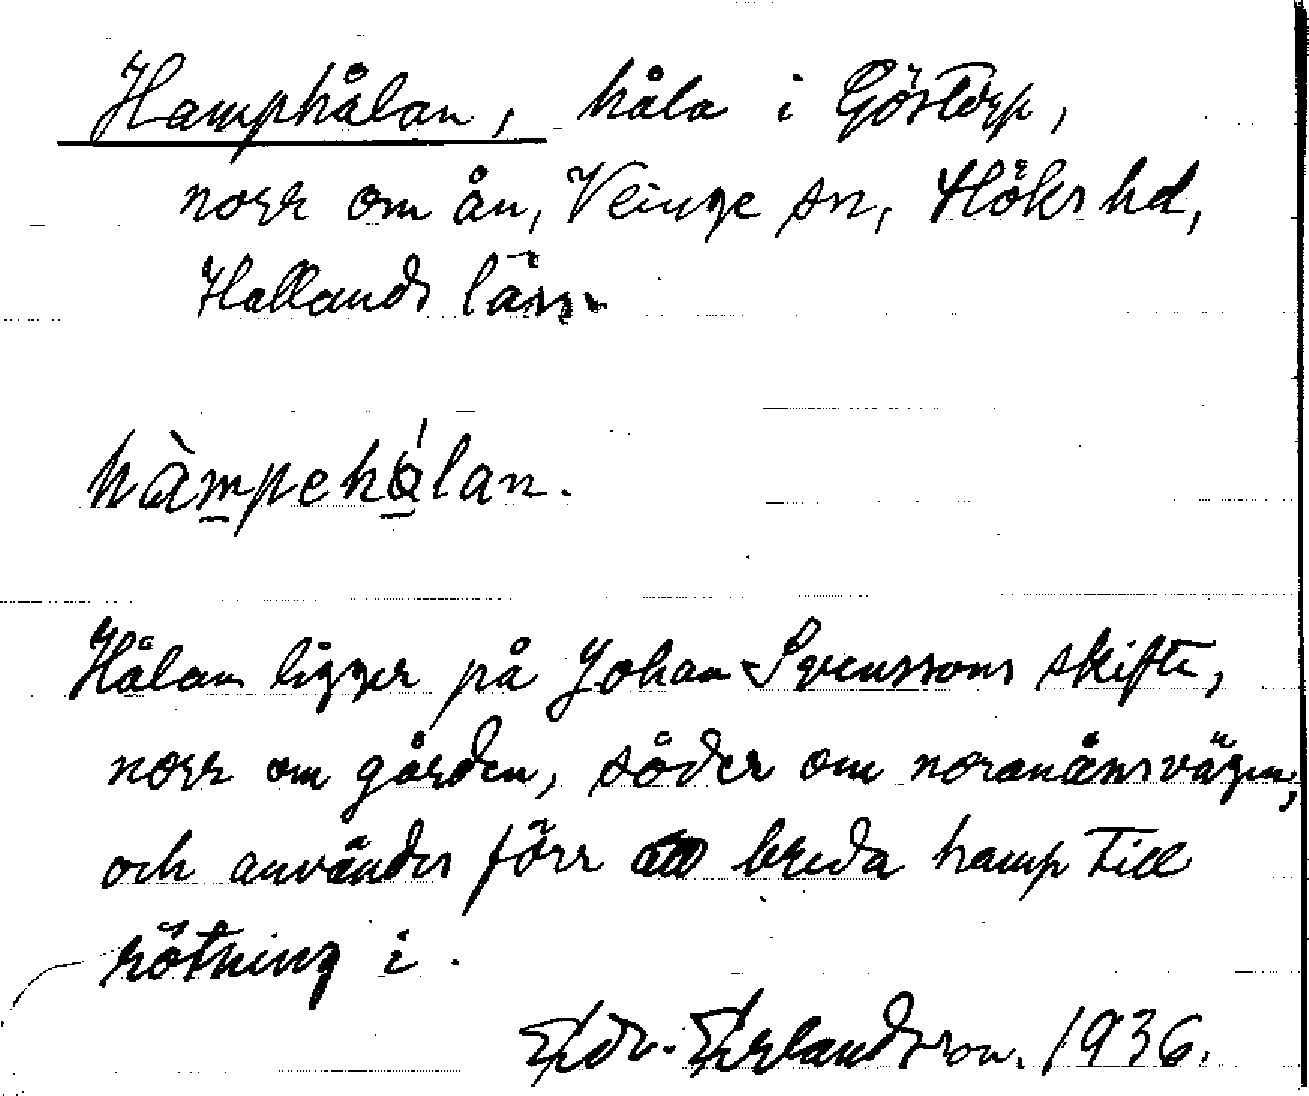 Hamphålan, håla i Göstorp,
norr om ån, Veinge sn, Höks hd,
Hallands län.
hàmpehålan.
Hålan ligger på Johan Svenssons skifte,
norr om gården, söder om noranånsvägen,
och användes förr att breda hamp till
rötning i.
Edv. Erlandsson. 1936.